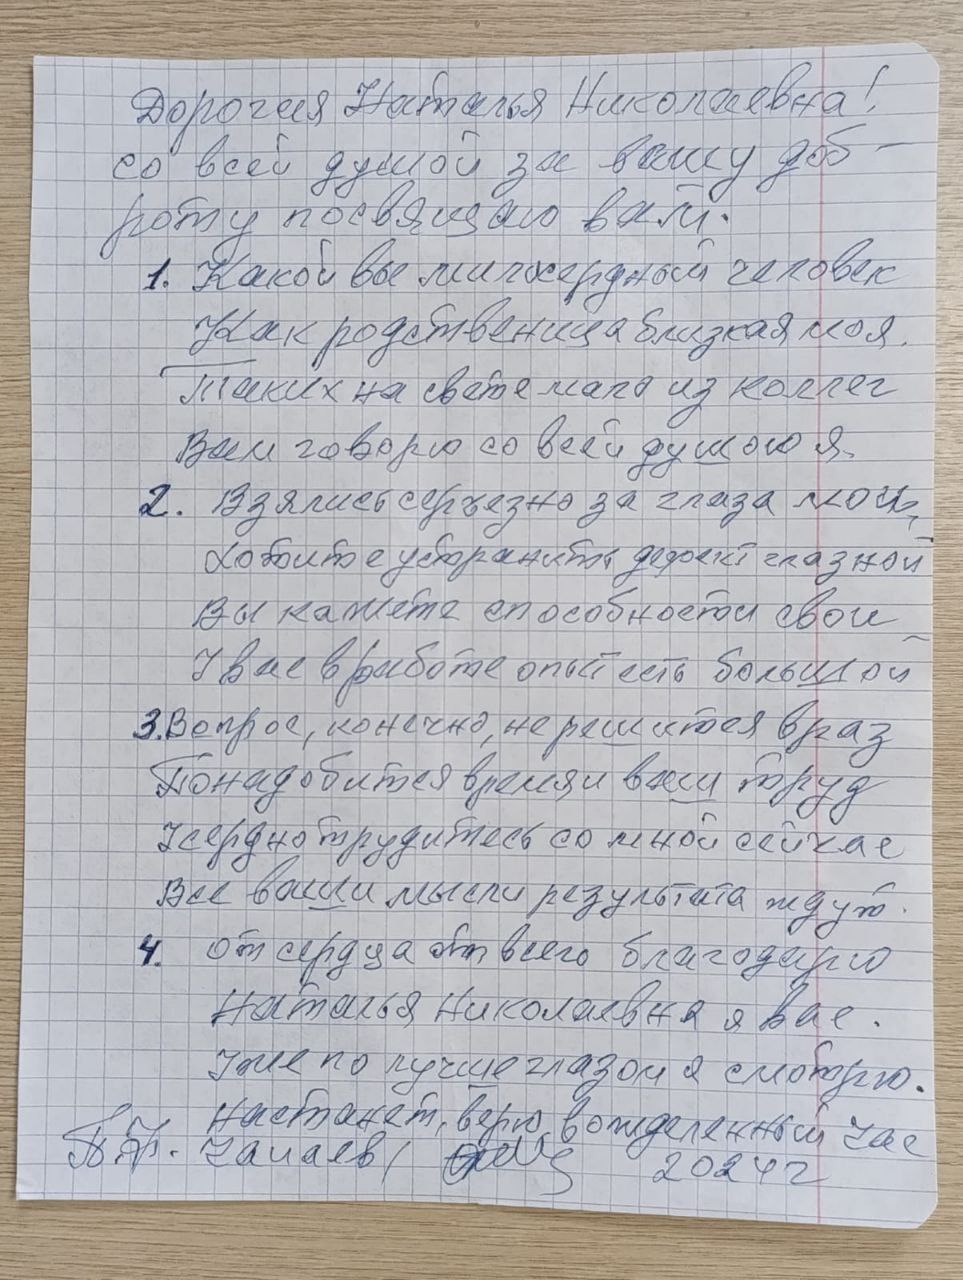 Дорогая Наталья Николаевна!
со всей душой за вашу доб-
роту посвящаю вам.
1. Какой вы милосердный человек
Как родственница близкая моя.
Таких на свете мало из коллег
Вам говорю со всей душою я.
2. Взялись серьезно за глаза мои,
Хотите устранить дефект глазной
Вы кажете способности свои
У вас в работе опыт есть большой
3. Вопрос, конечно, не решится враз
Понадобится время и ваш труд
Усердно трудитесь со мной сейчас
Все ваши мысли результата ждут.
4. От сердца от всего благодарю
Наталья Николаевна я вас.
Уже по лучше глазом я смотрю.
Настанет, верю, вожделенный час
2024 г